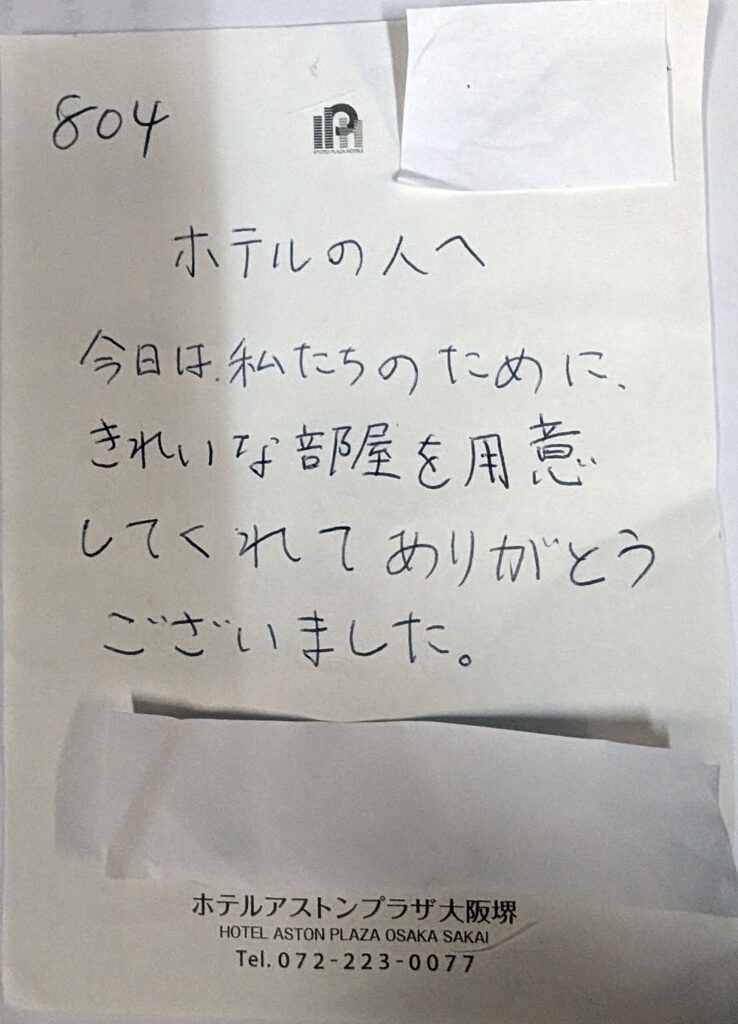 804
ホテルの人へ
今日は、私たちのために、
きれいな部屋を用意
してくれてありがとう
ございました。
ホテルアストンプラザ大阪堺
HOTEL ASTON PLAZA OSAKA SAKAI
Tel.072-223-0077